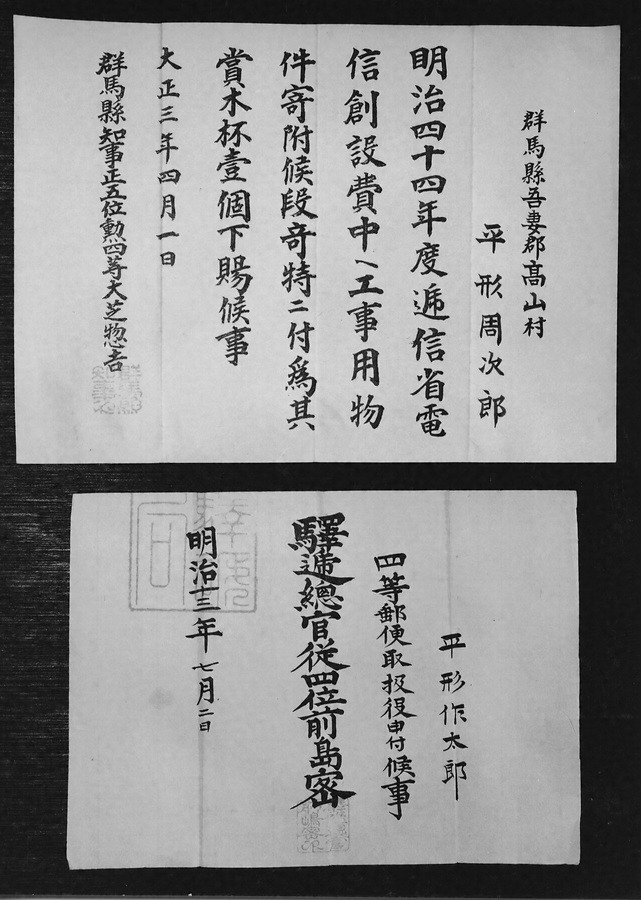 群馬縣吾妻郡高山村
平形周次郎
明治四十四年度逓信省電
信創設費中ヘ工事用物
件寄附候段奇特ニ付為其
賞木杯壹個下賜候事
大正三年四月一日
群馬縣知事正五位勲四等大芝惣吉
平形作太郎
四等郵便取扱役申付候事
驛逓總官従四位前島密
明治十三年七月二日